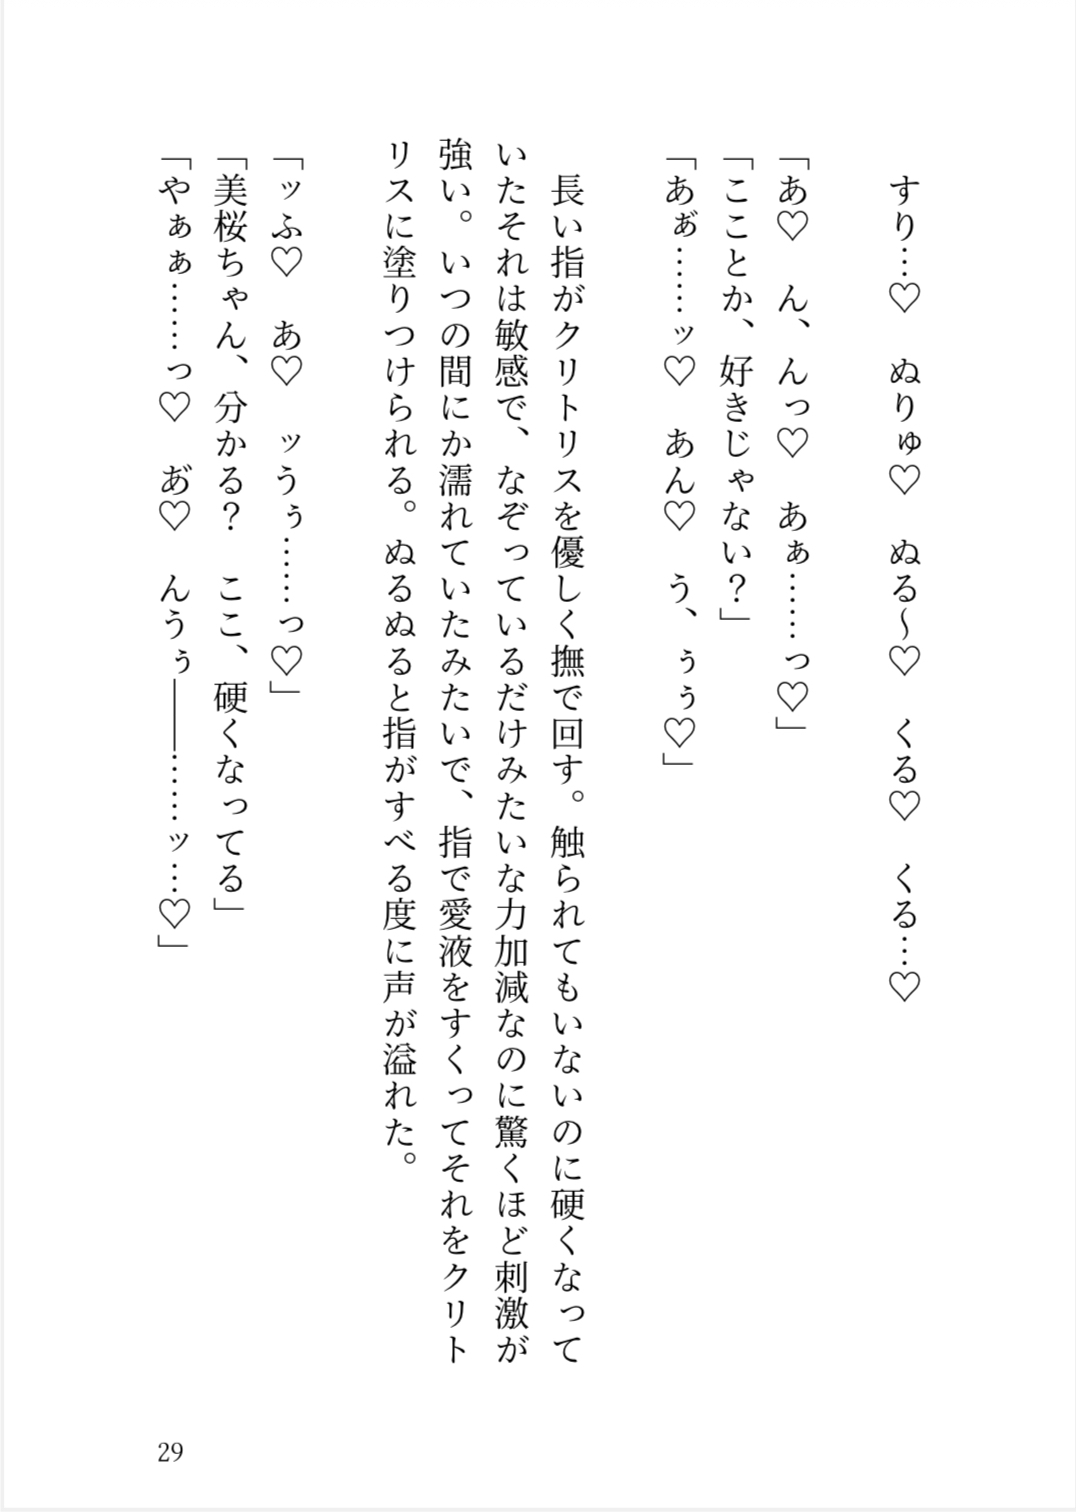 すり…♡　ぬりゅ♡　ぬる～♡　くる♡　くる…♡
「あ♡　ん、んっ♡　あぁ……っ♡」
「こことか、好きじゃない？」
「あぁ゙……ッ♡　あん♡　う、ぅぅ♡」
長い指がクリトリスを優しく撫で回す。触られてもいないのに硬くなって
いたそれは敏感で、なぞっているだけみたいな力加減なのに驚くほど刺激が
強い。いつの間にか濡れていたみたいで、指で愛液をすくってそれをクリト
リスに塗りつけられる。ぬるぬると指がすべる度に声が溢れた。
「ッふ♡　あ♡　ッうぅ……っ♡」
「美桜ちゃん、分かる？　ここ、硬くなってる」
「やぁぁ……っ♡　あ゙♡　んうぅ――……ッ…♡」
29